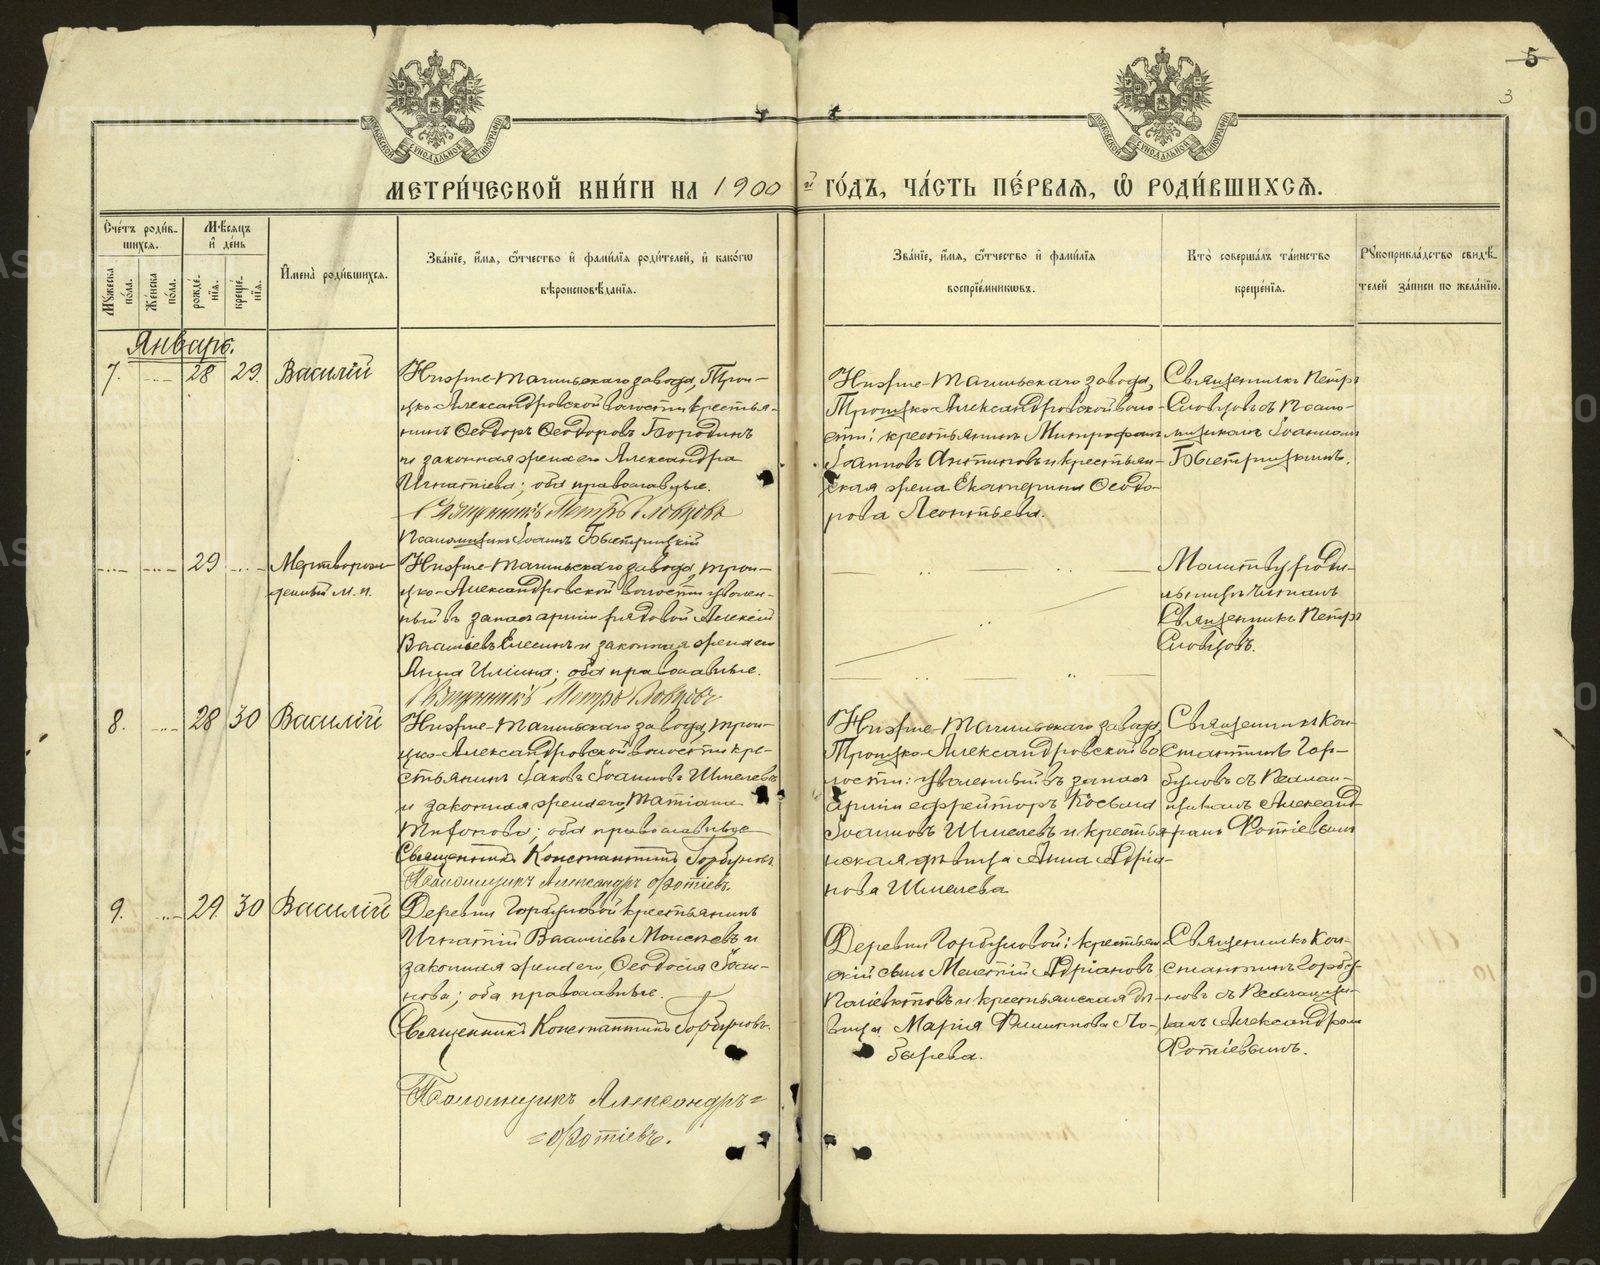 5
3
МОСКОВСКОЙ СѴНОДАЛЬНОЙ ТИПОГРАФІИ
МОСКОВСКОЙ СѴНОДАЛЬНОЙ ТИПОГРАФІИ
МЕТРИ́ЧЕСКОЙ КНИ́ГИ НА 1900й ГО́ДЪ, ЧА́СТЬ ПЕ́РВАЯ, Ѡ РОДИ́ВШИХСЯ.
Счётъ роди́в-
шихся.
Му́жеска по́ла.
Же́нска по́ла.
Мѣ́сяцъ
и҆ де́нь
рожде́-
нїя.
креще́-
нїя.
И҆мена̀ роди́вшихся.
Зва́нїе, и҆́мя, ѻ҆́тчество и҆ фами́лїя роди́телей, и҆ како́гѡ
вѣроисповѣ́данїя.
Зва́нїе, и҆́мя, ѻ҆́тчество и҆ фами́лїя
воспрїе́мникѡвъ.
Кто̀ соверша́лъ та́инство
креще́нїя.
Рꙋкоприкла́дство свидѣ́-
телей за́писи по жела́нїю.
Январь.
7. 28 29. Василій
Нижне-Тагильскаго завода, Трои-
цко-Александровской волости крестья-
нинъ Ѳеодоръ Ѳеодоровъ Бородинъ
и законная жена его Александра
Игнатіева; оба православные.
Священникъ Петръ Словцовъ
Псаломщикъ Іоаннъ Быстрицкій
Нижне-Тагильскаго завода,
Троицко-Александровской воло-
сти: крестьянинъ Митрофанъ
Іоанновъ Антиповъ и крестьян-
ская жена Екатерина Ѳеодо-
рова Леонтьева.
Священникъ Петръ
Словцовъ съ псало-
мщикомъ Іоанномъ
Быстрицкимъ.
29 Мертворож-
денный м. п.
Нижне-Тагильскаго завода, Трои-
цко-Александровской волости уволен-
ный въ запасъ арміи рядовой Алексій
Василіевъ и законная жена его
Анна Ильина; оба православные.
Священникъ Петръ Словцовъ
Молитву роди-
льницѣ читалъ
Священникъ Петръ
Словцовъ.
8. 28 30 Василій
Нижне-Тагильскаго завода, Трои-
цко-Александровской волости кре-
стьянинъ Іаковъ Іоанновъ Шмелевъ
и законная жена его, Татіана
Тифонова; оба православные
Священникъ Константинъ Горбуновъ
Псаломщикъ Александръ Фотіевъ.
Нижне-Тагильскаго завода,
Троицко-Александровской во-
лости: уволенный въ запасъ
арміи ефрейторъ Косьма
Іоанновъ Шмелевъ и крестья-
нская дѣвица Анна Адріа-
нова Шмелева
Священникъ Кон-
стантинъ Гор-
буновъ съ Псалом-
щикомъ Александ-
ромъ Фотіевымъ
9. 29. 30 Василій
Деревни Горбуновой крестьянинъ
Игнатій Василіевъ и
законная жена его, Ѳеодосія Іоан-
нова; оба православные.
Священникъ Константинъ Горбуновъ.
Псаломщикъ Александръ=
=Фотіевъ.
Деревни Горбуновой: крестьян-
скій сынъ Мелетій Адріановъ
и крестьянская дѣ-
вица Марія Филиппова Ло-
барева.
Священникъ Кон-
стантинъ Горбу-
новъ съ Псаломщи-
комъ Александромъ
Фотіевымъ.